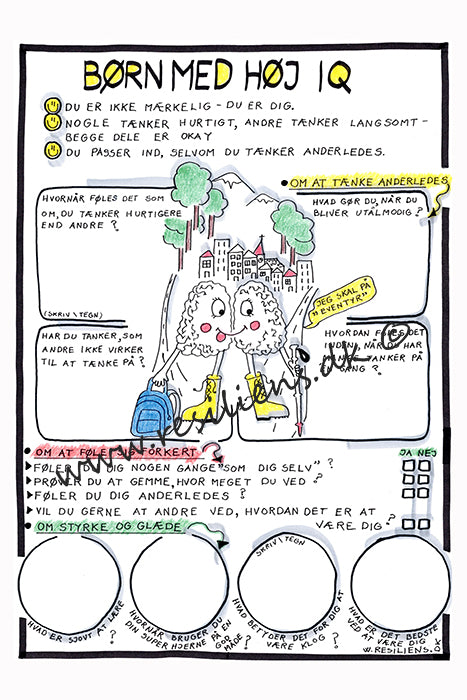 BØRN MED HØJ IQ
DU ER IKKE MÆRKELIG - DU ER DIG.
NOGLE TÆNKER HURTIGT, ANDRE TÆNKER LANGSOMT -
BEGGE DELE ER OKAY
DU PASSER IND, SELVOM DU TÆNKER ANDERLEDES.
OM AT TÆNKE ANDERLEDES
HVORNÅR FØLES DET SOM
OM, DU TÆNKER HURTIGERE
END ANDRE ?
(SKRIV/TEGN)
HVAD GØR DU, NÅR DU
BLIVER UTÅLMODIG ?
JEG SKAL PÅ
"EVENTYR"
HAR DU TANKER, SOM
ANDRE IKKE VIRKER
TIL AT TÆNKE PÅ ?
HVORDAN FØLES DET
INDENI, NÅR DU HAR
TANKER PÅ
GANG ?
www.resiliens.dk ©
OM AT FØLE SIG FORKERT
JA NEJ
FØLER DU DIG NOGEN GANGE "SOM DIG SELV" ?
PRØVER DU AT GEMME, HVOR MEGET DU VED ?
FØLER DU DIG ANDERLEDES ?
VIL DU GERNE AT ANDRE VED, HVORDAN DET ER AT
VÆRE DIG ?
OM STYRKE OG GLÆDE
HVAD ER SJOVT AT LÆRE ?
HVORNÅR BRUGER DU
DIN SUPER HJERNE PÅ EN
GOD
MÅDE ?
SKRIV/TEGN
HVAD BETYDER DET FOR DIG AT
VÆRE KLOG ?
HVAD ER DET BEDSTE
VED AT VÆRE DIG ?
W.RESILIENS.DK